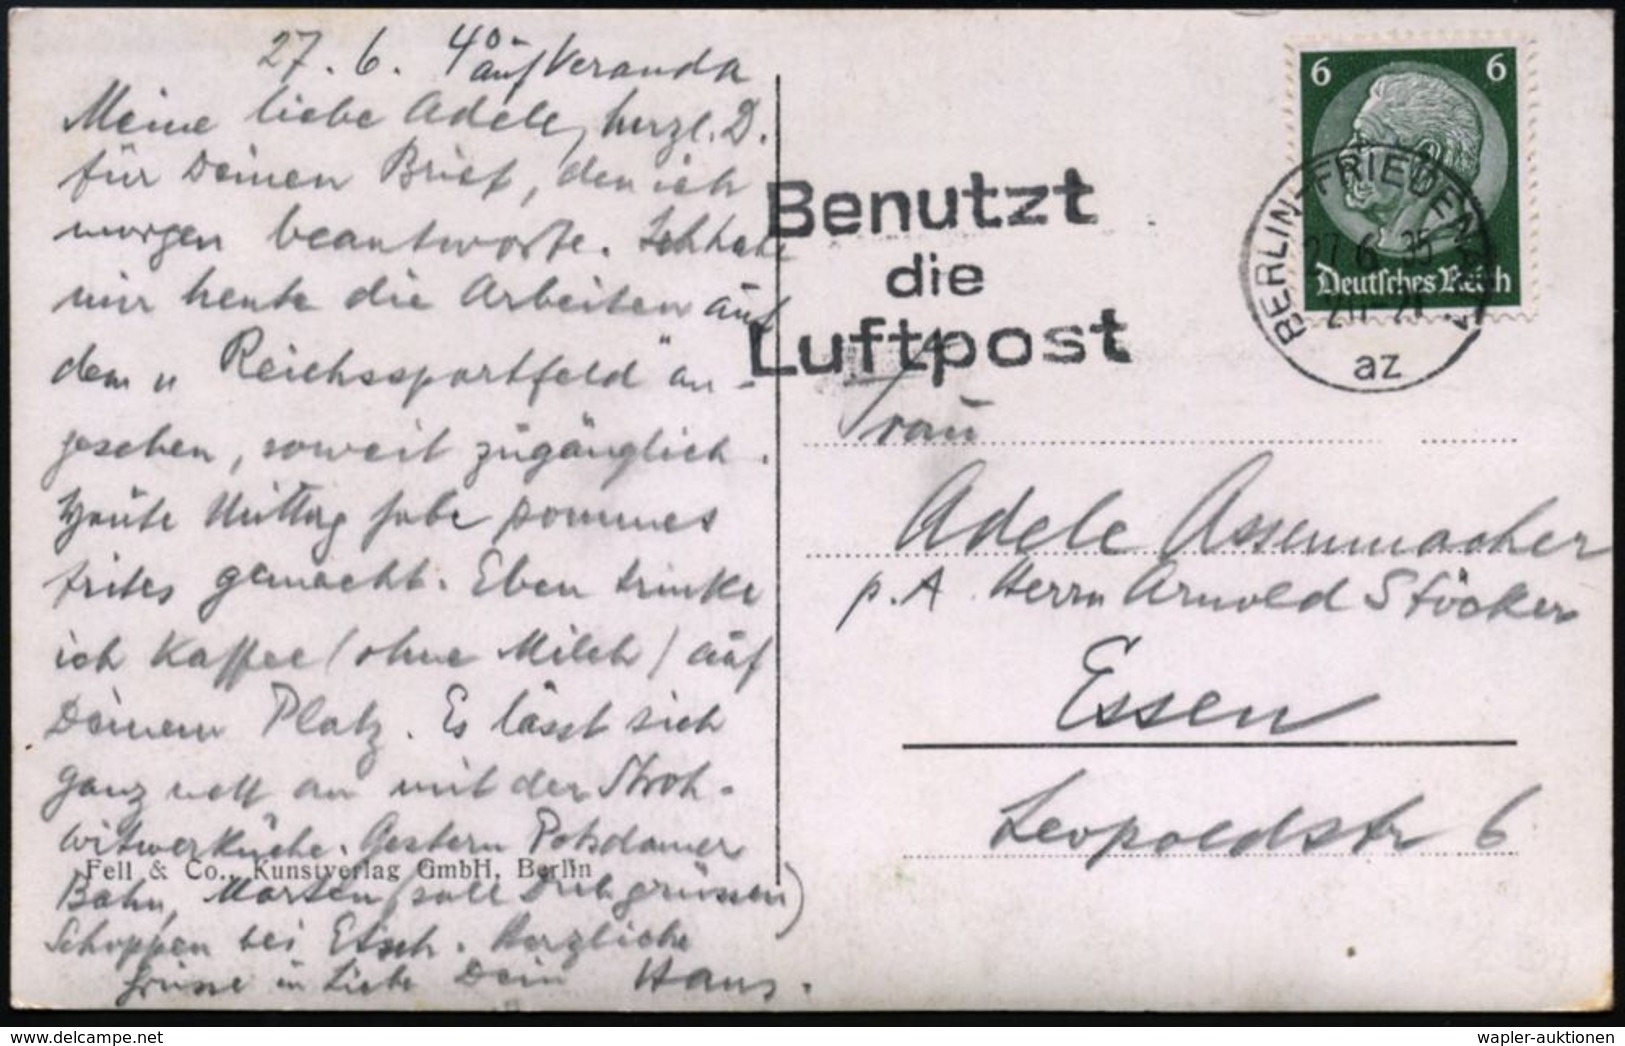 27. 6. 4° auf Veranda
Meine liebe Adele, herzl. D.
für Deinen Brief, den ich
morgen beantworte. Ich habe
mir heute die Arbeiten auf
dem "Reichssportfeld" an-
gesehen, soweit zugänglich.
Heute Mittag habe pommes
frites gemacht. Eben trinke
ich Kaffee (ohne Milch) auf
Deinem Platz. Es lässt sich
ganz nett an mit der Stroh-
witwerküche. Gestern Potsdamer
Fell & Co., Kunstverlag GmbH, Berlin
Bahn, (soll Dich grüssen)
Schoppen bei. Herzliche
Grüsse in Liebe Dein Hans.
Benutzt
die
Luftpost
6 6
Deutsches Reich
BERLIN-FRIEDENAU
27.6.35
az
Frau
Adele Assenmacher
p. A. Herrn Arnold Stöcker
Essen
Leopoldstr 6
www.delcampe.net
wapler-auktionen